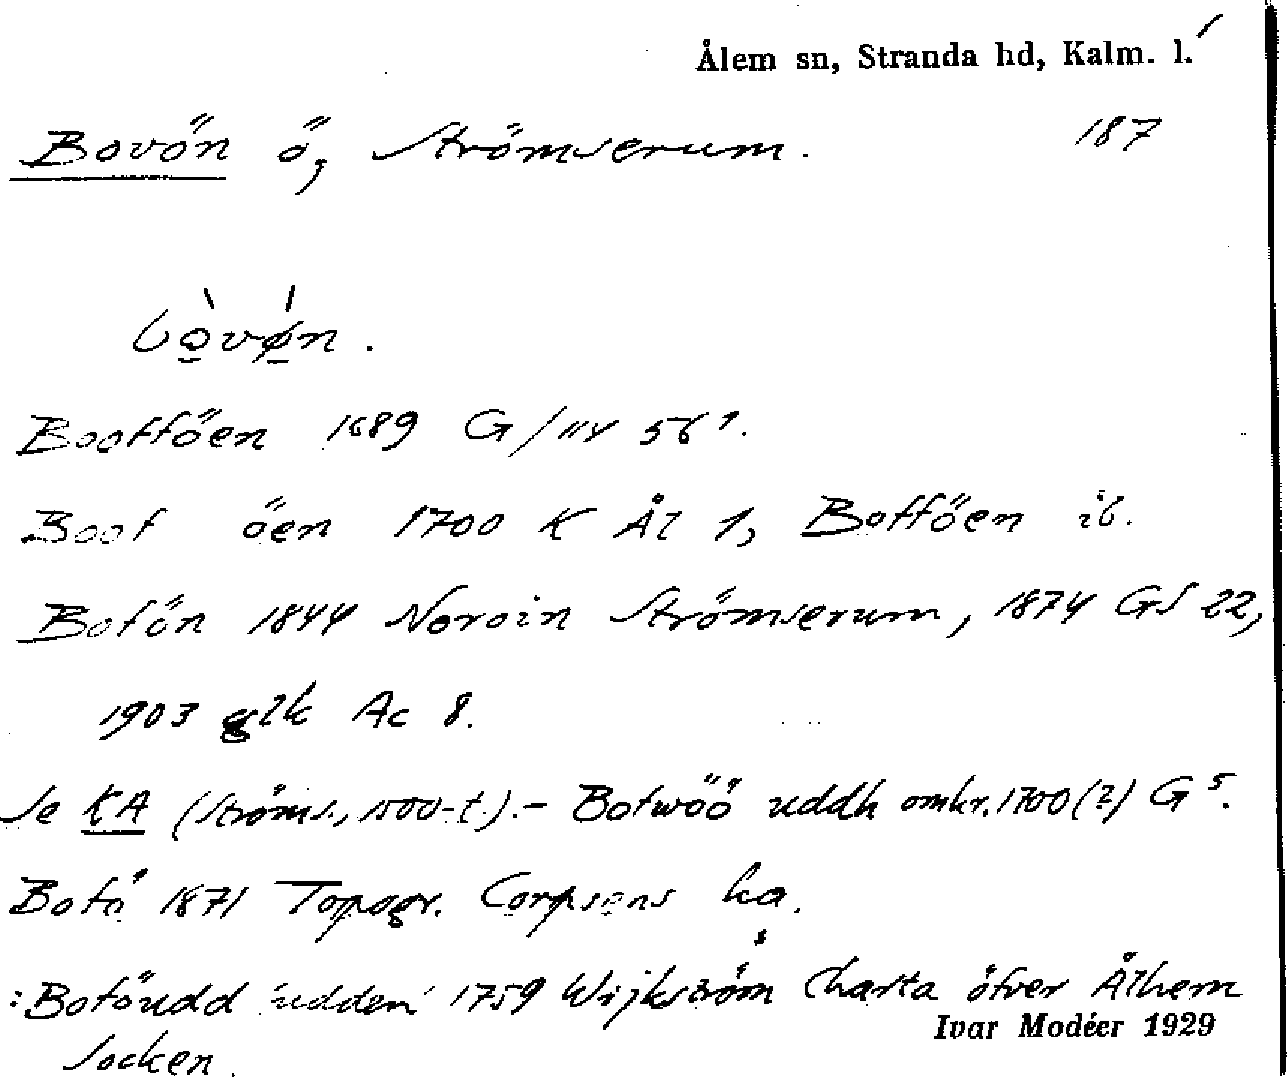 Ålem sn, Stranda hd, Kalm. l.
Bovön ö, Strömserum. 187
bòvǿn.
Boofföen 1689 G/IIV 56¹.
Boof öen 1700 K Ål 1, Bofföen ib.
Bofön 1844 Noroin Strömserum, 1874 GS 22,
1903 glk Ac 8.
Se KA (Ströms., 1500-t.).- Bofwöö uddh omkr. 1700 (?) G⁵.
Bofö 1871 Topogr. Corpsens ka.
:Boföudd udden 1759 Wijkström Charta öfver Ålhem
Socken.
Ivar Modéer 1929